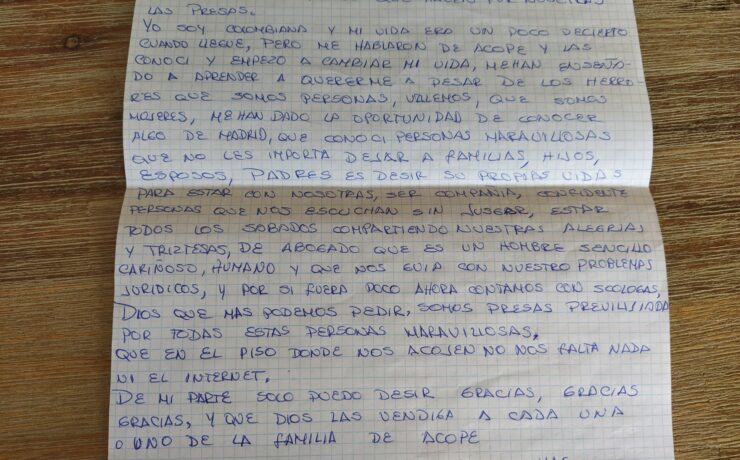 QUE HACEIS POR NOSOTRAS
LAS PRESAS.
YO SOY COLOMBIANA Y MI VIDA ERA UN POCO DECIERTO
CUANDO LLEGUE, PERO ME HABLARON DE ACOPE Y LAS
CONOCI Y EMPEZO A CAMBIAR MI VIDA, ME HAN ENSEÑA-
DO A APRENDER A QUERERME A DEJAR DE LOS HERRO-
RES QUE SOMOS PERSONAS, VALEMOS, QUE SOMOS
MUJERES, ME HAN DADO LA OPORTUNIDAD DE CONOCER
ALGO DE MADRID, QUE CONOCI PERSONAS MARAVILLOSAS
QUE NO LES IMPORTA DEJAR A FAMILIAS, HIJOS,
ESPOSOS, PADRES ES DESIR SU PROPIAS VIDAS
PARA ESTAR CON NOSOTRAS, SER COMPAÑIA, CONFIDENTE
PERSONAS QUE NOS ESCUCHAN SIN JUSGAR, ESTAR
TODOS LOS SABADOS COMPARTIENDO NUESTRAS ALEGRIAS
Y TRIZTESAS, DE ABOGADO QUE ES UN HOMBRE SENCILLO
CARIÑOSO, HUMANO Y QUE NOS GUIA CON NUESTRO PROBLEMAS
JURIDICOS, Y POR SI FUERA POCO AHORA CONTAMOS CON SCOLOGAS,
DIOS QUE MAS PODEMOS PEDIR, SOMOS PRESAS PREVILIJIADA
POR TODAS ESTAS PERSONAS MARAVILLOSAS,
QUE EN EL PISO DONDE NOS ACOJEN NO NOS FALTA NADA
NI EL INTERNET.
DE MI PARTE SOLO PUEDO DESIR GRACIAS, GRACIAS
GRACIAS, Y QUE DIOS LAS VENDIGA A CADA UNA
O UNO DE LA FAMILIA DE ACOPE